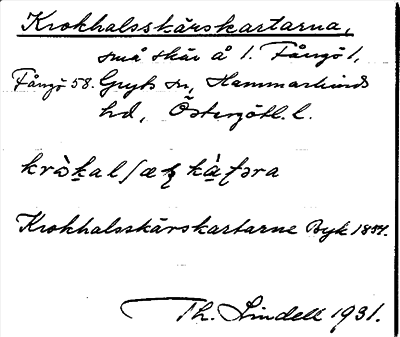 Krokhalsskärskartarna,
små skär å l. Fångö 1,
Fångö 58. Gryts sn, Hammarkinds
hd, Östergötl. l.
Krokhalsskärskartarne Byk 1854.
Th. Lindell 1931.